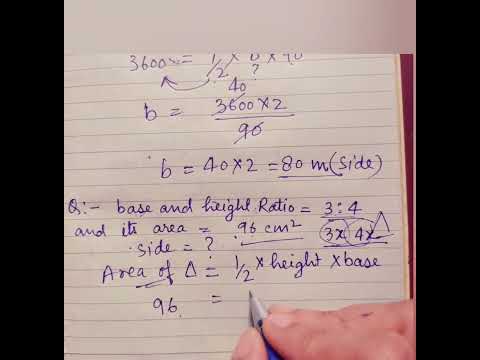 3600 = 1/2 × b × 90
?
40
b = 3600×2
90
b = 40×2 = 80 m (side)
Q:- base and height Ratio = 3:4
and its area = 96 cm²
3x 4x Δ
side = ?
Area of Δ = 1/2 × height × base
96 =